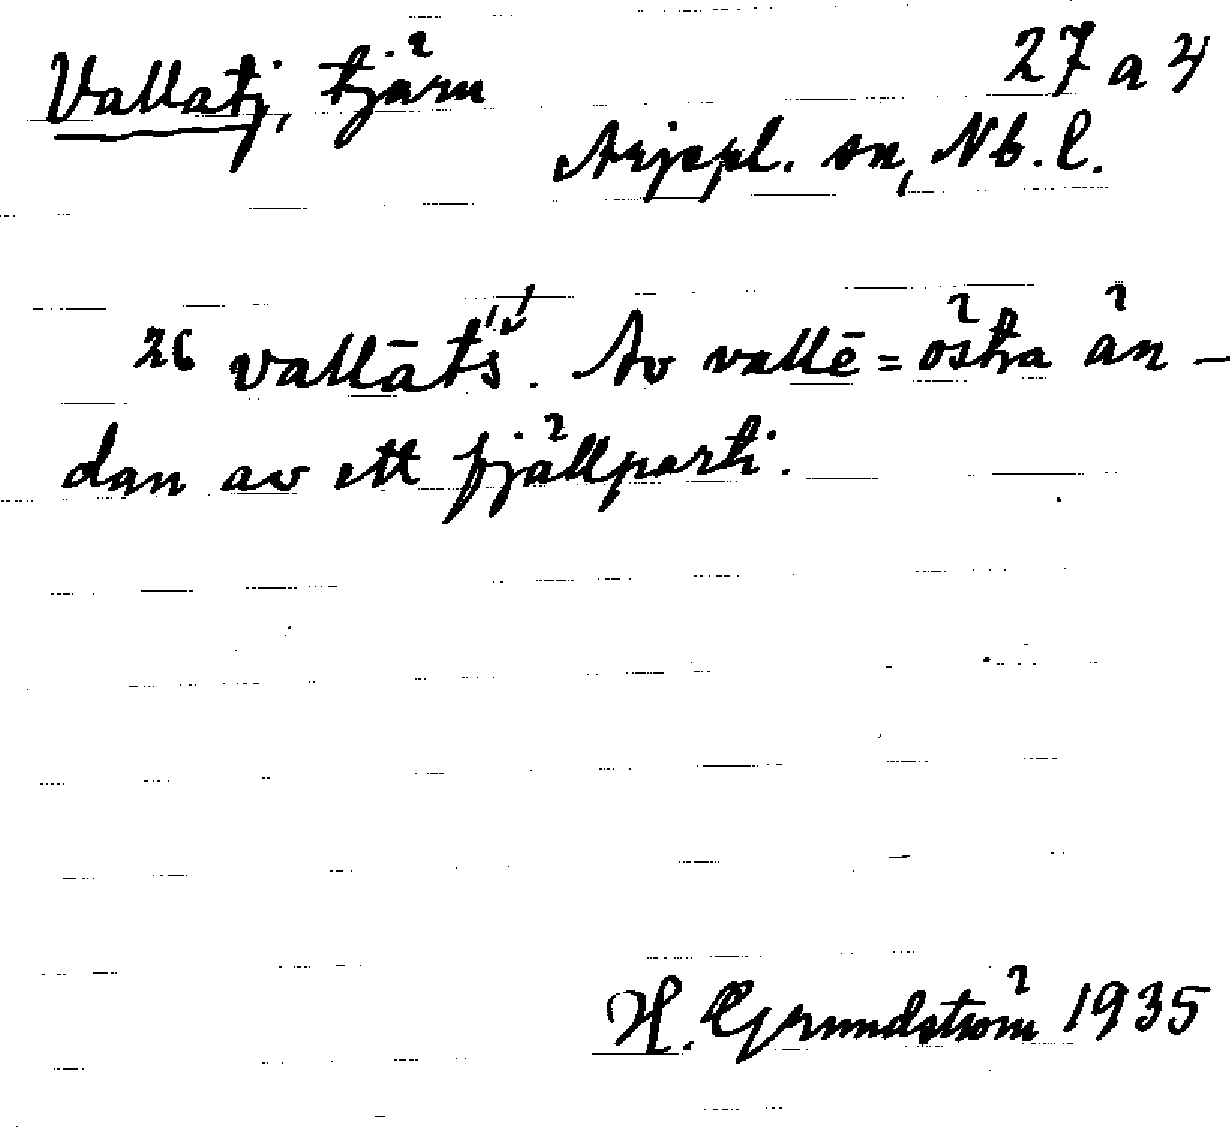 Vallatj, tjärn 27 a 4
Arjepl. sn, Nb. l.
26 vallāts̓́. Av vallē = östra än-
dan av ett fjällparti.
H. Grundström 1935